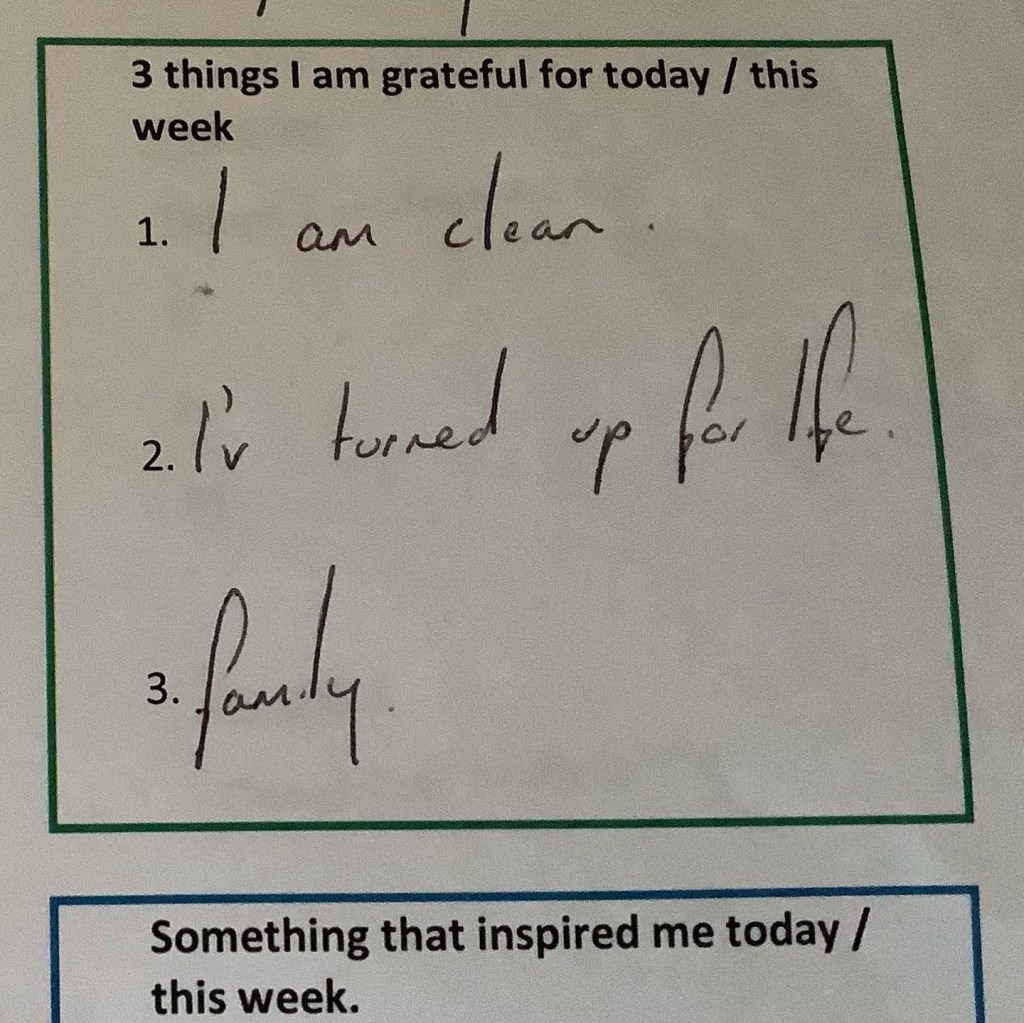 3 things I am grateful for today / this
week
1. I am clean.
2. I'v turned up for life.
3. family.
Something that inspired me today /
this week.